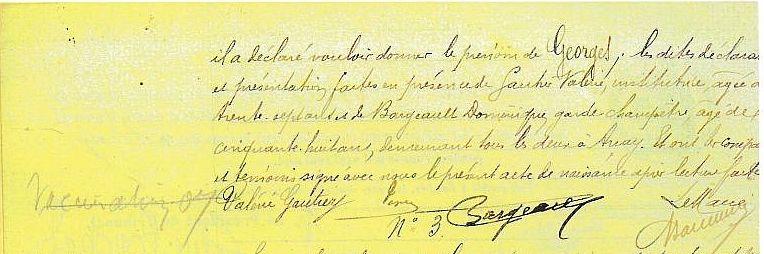 il a déclaré vouloir donner le prénom de Georges, les dites déclara
et présentation faites en présence de Gautier Valérie, institutrice, agée d
trente-sept ans et de Bargeault Dominique, garde-champêtre agé de
cinquante-huit ans, demeurant tous les deux à Arcay. Et ont les compa
et témoins signé avec nous le présent acte de naissance après lecture faite
Valérie Gautier
Bargeault
Le Maire
N° 3.